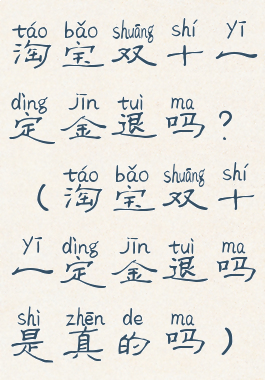 táo bǎo shuāng shí yī
淘宝双十一
dìng jīn tuì ma
定金退吗？
táo bǎo shuāng shí
（淘宝双十
yī dìng jīn tuì ma
一定金退吗
shì zhēn de ma
是真的吗）